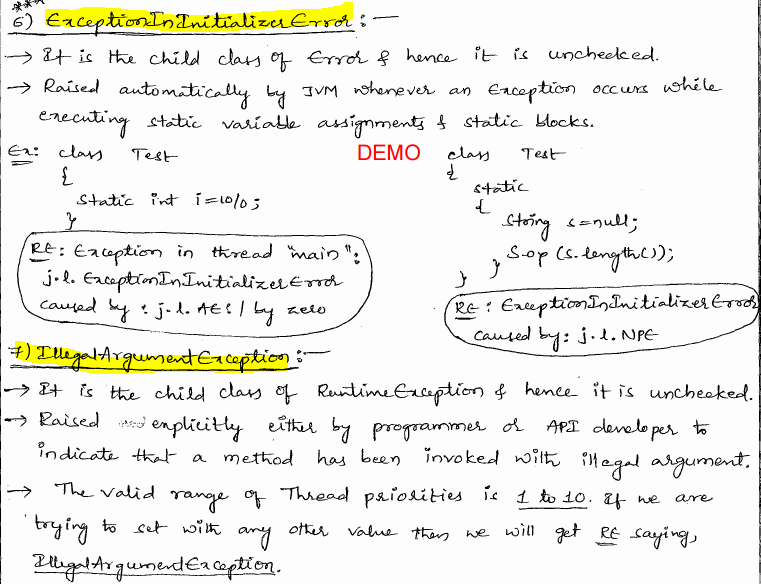 ***
6) ExceptionInInitializerError :-
→ It is the child class of Error & hence it is unchecked.
→ Raised automatically by JVM whenever an Exception occurs while
executing static variable assignments & static blocks.
Ex: class Test
{
static int i=10/0;
}
RE: Exception in thread "main":
j.l. ExceptionInInitializerError
caused by : j.l. AE: / by zero
DEMO
class Test
{
static
{
String s=null;
S.o.p (s.length());
}
}
RE : ExceptionInInitializerError
caused by: j.l. NPE
7) IllegalArgumentException :-
→ It is the child class of RuntimeException & hence it is unchecked.
→ Raised explicitly either by programmer or API developer to
indicate that a method has been invoked with illegal argument.
→ The valid range of Thread priorities is 1 to 10. If we are
trying to set with any other value then we will get RE saying,
IllegalArgumentException.